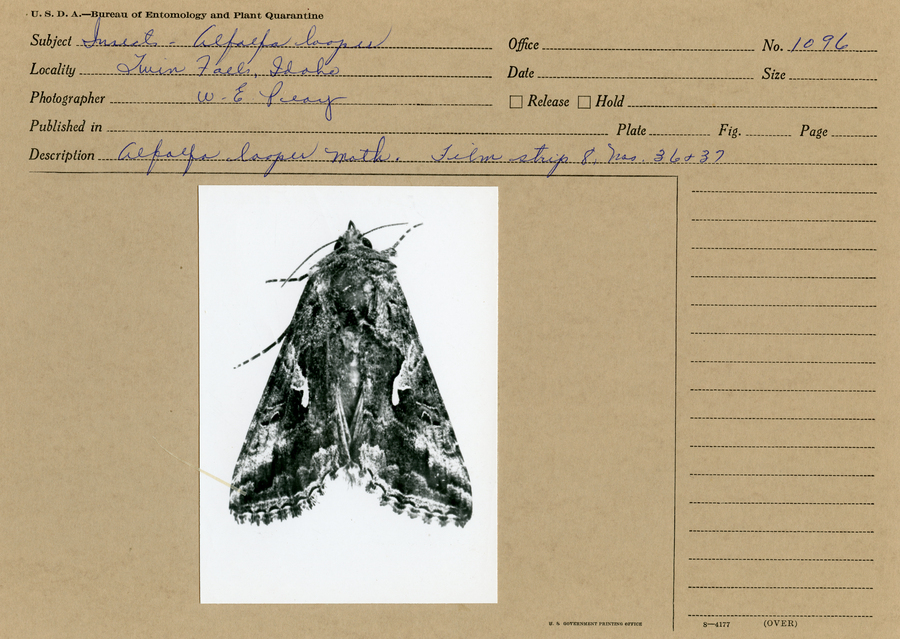 U. S. D. A.—Bureau of Entomology and Plant Quarantine
Subject Insects - Alfalfa looper Office No. 1096
Locality Twin Falls, Idaho Date Size
Photographer W. E. Peay Release Hold
Published in Plate Fig. Page
Description Alfalfa looper moth. Film strip 8, Nos. 36+37
U. S. GOVERNMENT PRINTING OFFICE 8—4177 (OVER)